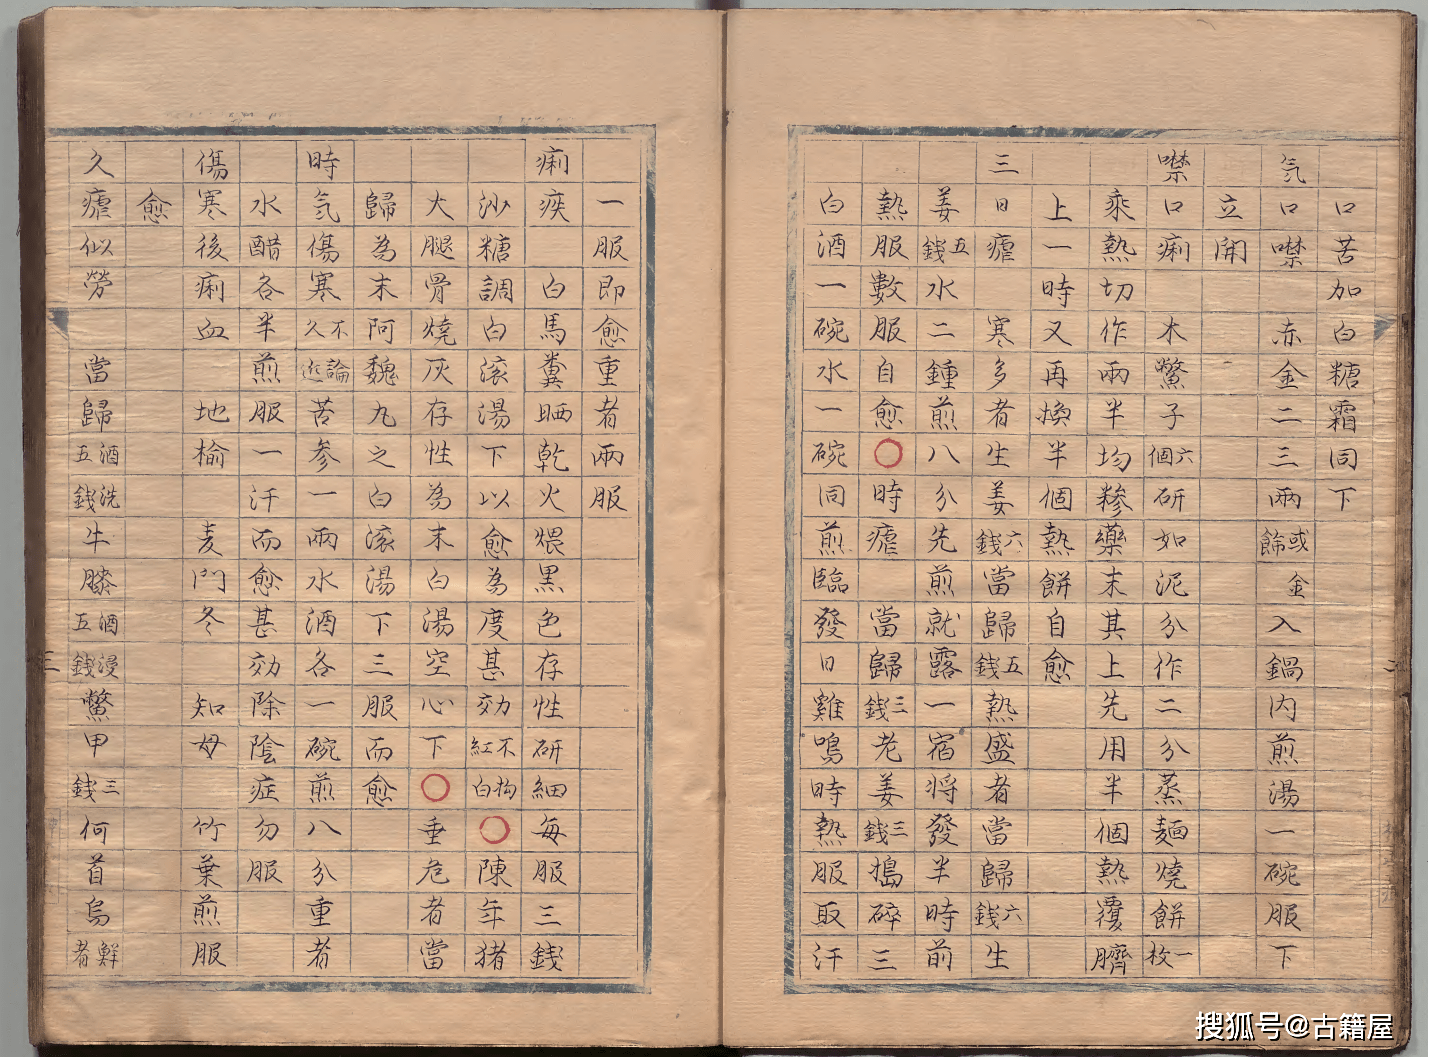 口苦加白糖霜同下
気口噤赤金二三兩或飾金入鍋内煎湯一碗服下
立開
噤口痢木鱉子六個研如泥分作二分蒸麺燒餅一枚
乘熱切作兩半均糝藥末其上先用半個熱覆臍
上一時又再換半個熱餅自愈
三日瘧寒多者生姜六錢當歸五錢熱盛者當歸六錢生
姜五錢水二鍾煎八分先煎就露一宿将發半時前
熱服數服自愈〇時瘧當歸三錢老姜三錢搗碎三
白酒一碗水一碗同煎臨發日雞鳴時熱服取汗
一服即愈重者兩服
痢疾白馬糞晒乾火煨黑色存性研細每服三錢
沙糖調白滚湯下以愈為度甚効不拘紅白〇陳年猪
火腿骨燒灰存性為末白湯空心下〇垂危者當
歸為末阿魏丸之白滚湯下三服而愈
時氣傷寒不論久近苦参一兩水酒各一碗煎八分重者
水醋各半煎服一汗而愈甚効除陰症勿服
傷寒後痢血地榆麦門冬知母竹葉煎服
愈
久瘧似勞當歸酒洗五錢牛膝酒浸五錢鱉甲三錢何首烏鮮者
二
三
搜狐号@古籍屋